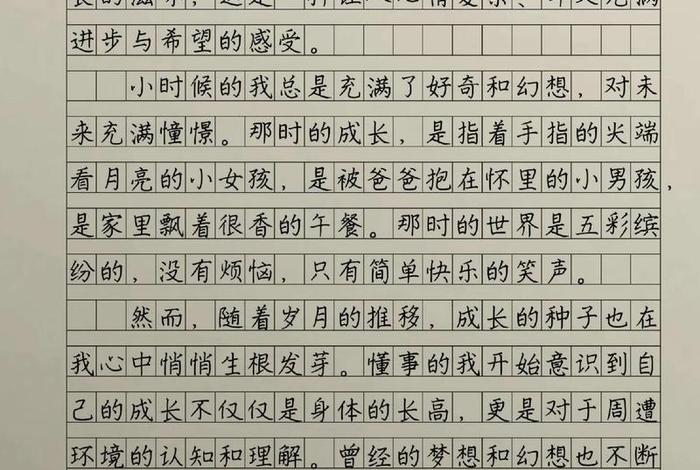 进步与希望的感受。
小时候的我总是充满了好奇和幻想，对未
来充满憧憬。那时的成长，是指着手指的尖端
看月亮的小女孩，是被爸爸抱在怀里的小男孩，
是家里飘着很香的午餐。那时的世界是五彩缤
纷的，没有烦恼，只有简单快乐的笑声。
然而，随着岁月的推移，成长的种子也在
我心中悄悄生根发芽。懂事的我开始意识到自
己的成长不仅仅是身体的长高，更是对于周遭
环境的认知和理解。曾经的梦想和幻想也不断